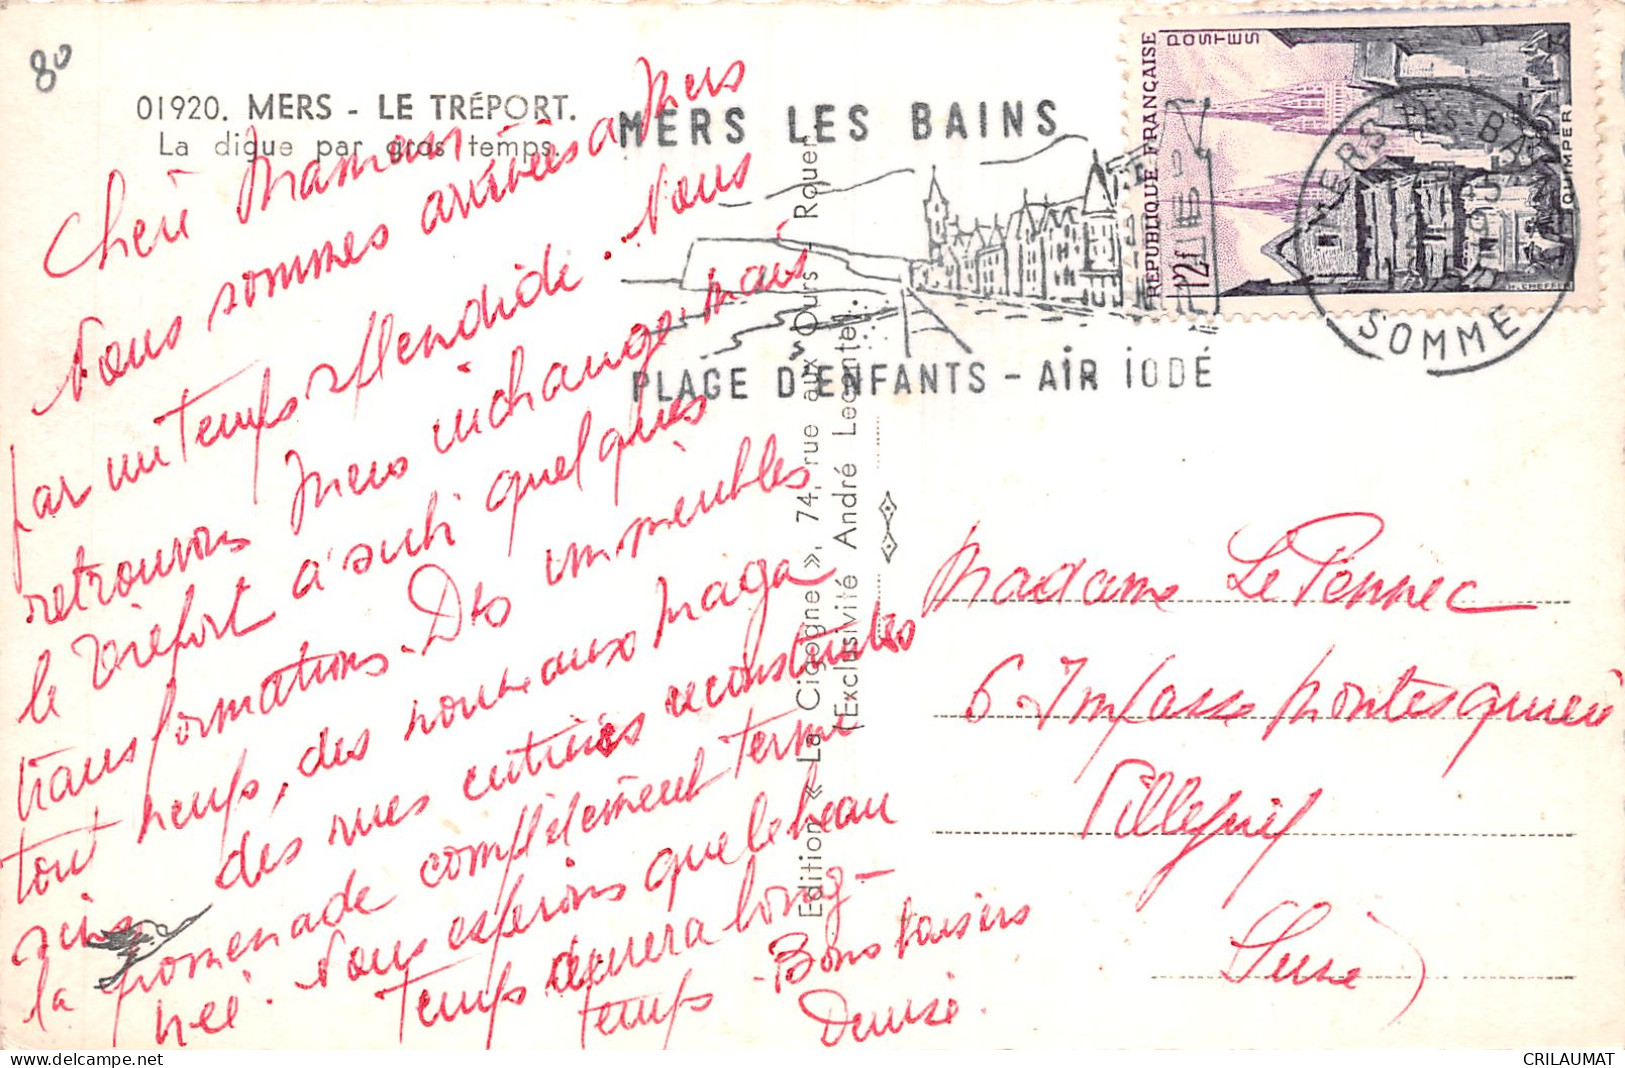 80
01920. MERS - LE TRÉPORT.
La digue par gros temps.
Chère Maman
Nous sommes arrivées à Mers
par un temps splendide. Nous
retrouvons Mers inchangé, mais
le Tréport a subi quelques
transformations. Des immeubles
tout neufs, des nouveaux maga
sins
des rues entières reconstruites
la promenade complètement termi
née. Nous espérons que le beau
temps durera long-
temps - Bons baisers
Denise.
Edition « La Cigogne », 74, rue aux Ours - Rouen
(Exclusivité André Lecontel.
MERS LES BAINS
PLAGE D'ENFANTS - AIR IODÉ
RÉPUBLIQUE FRANÇAISE
POSTES
12F
QUIMPER
H. CHEFFER
MERS LES BAINS
SOMME
Madame Le Pennec
6 Impasse Montesquieu
Villejuif
Seine
CRILAUMAT